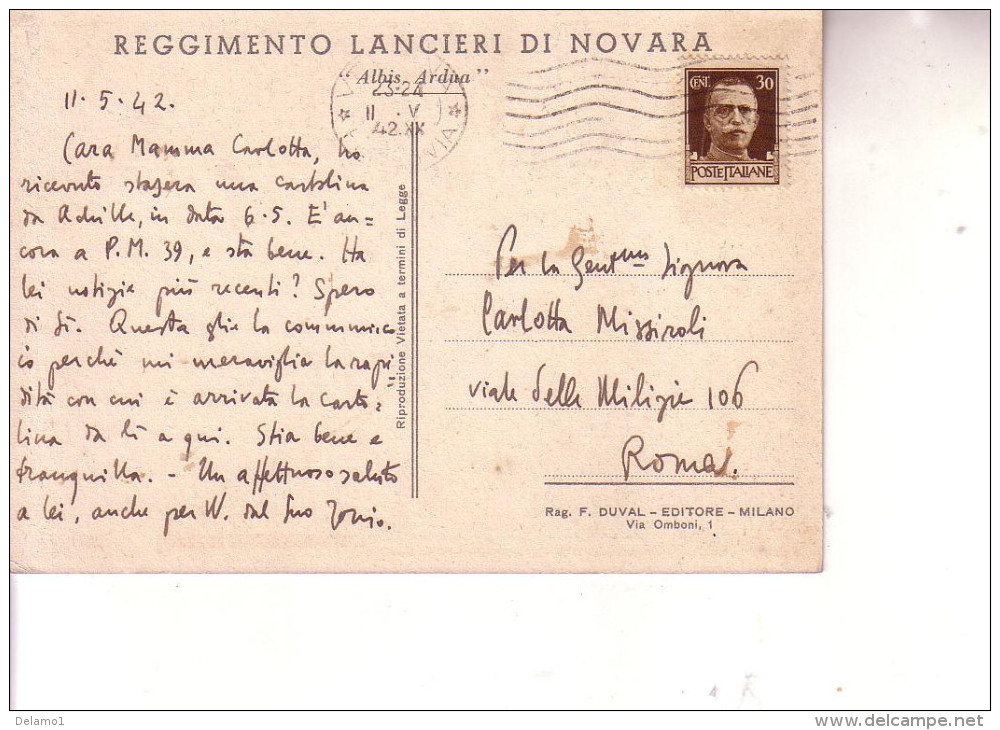 REGGIMENTO LANCIERI DI NOVARA
"Albis Ardua"
23-24
11 · V
42.XX
CENT. 30
POSTE ITALIANE
11·5·42.
Cara Mamma Carlotta, ho
ricevuto stasera una cartolina
da Achille, in data 6·5. E' an=
cora a P.M. 39, e sta bene. Ha
lei notizie più recenti? Spero
di sì. Questa glie la communico
io perchè mi meraviglia la rapi=
dità con cui è arrivata la carto=
lina da lì a qui. Stia bene e
tranquilla. – Un affettuoso saluto
a lei, anche per W. dal Suo Tonio.
Riproduzione Vietata a termini di Legge
Per la Gent.ma Signora
Carlotta Missiroli
viale delle Milizie 106
Roma.
Rag. F. DUVAL – EDITORE – MILANO
Via Omboni, 1
Delamo1
delcampe.net